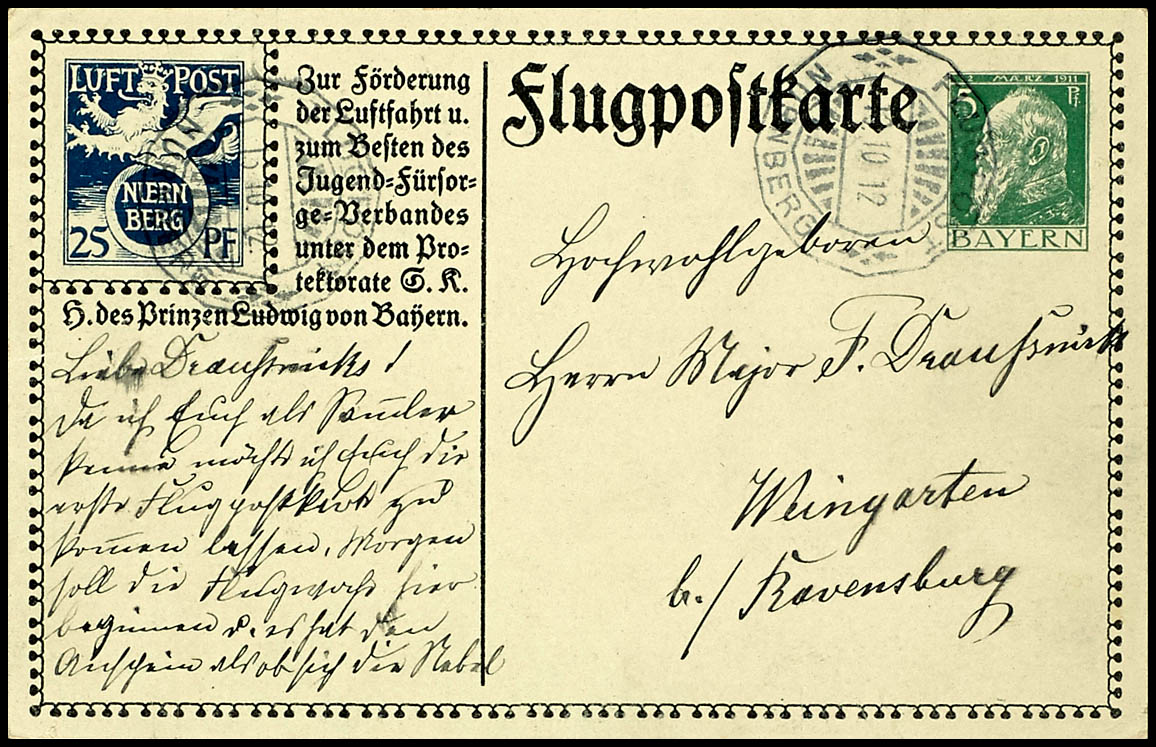 LUFT POST
NUERN
BERG
25 PF
Zur Förderung
der Luftfahrt u.
zum Besten des
Jugend=Fürsor=
ge=Verbandes
unter dem Pro=
tektorate S. K.
H. des Prinzen Ludwig von Bayern.
Flugpostkarte
12 MÄRZ 1911
5 Pf.
BAYERN
NÜRNBERG
10 12
Hochwohlgeboren
Herrn Major F.
Weingarten
b./ Ravensburg
Liebe
Da ich Euch als Sam̅ler
kenne möchte ich Euch die
erste Flugpostkarte zu
kom̅en lassen. Morgen
soll die Flugwoche hier
beginnen u. es hat den
Anschein als ob sich die Nebel